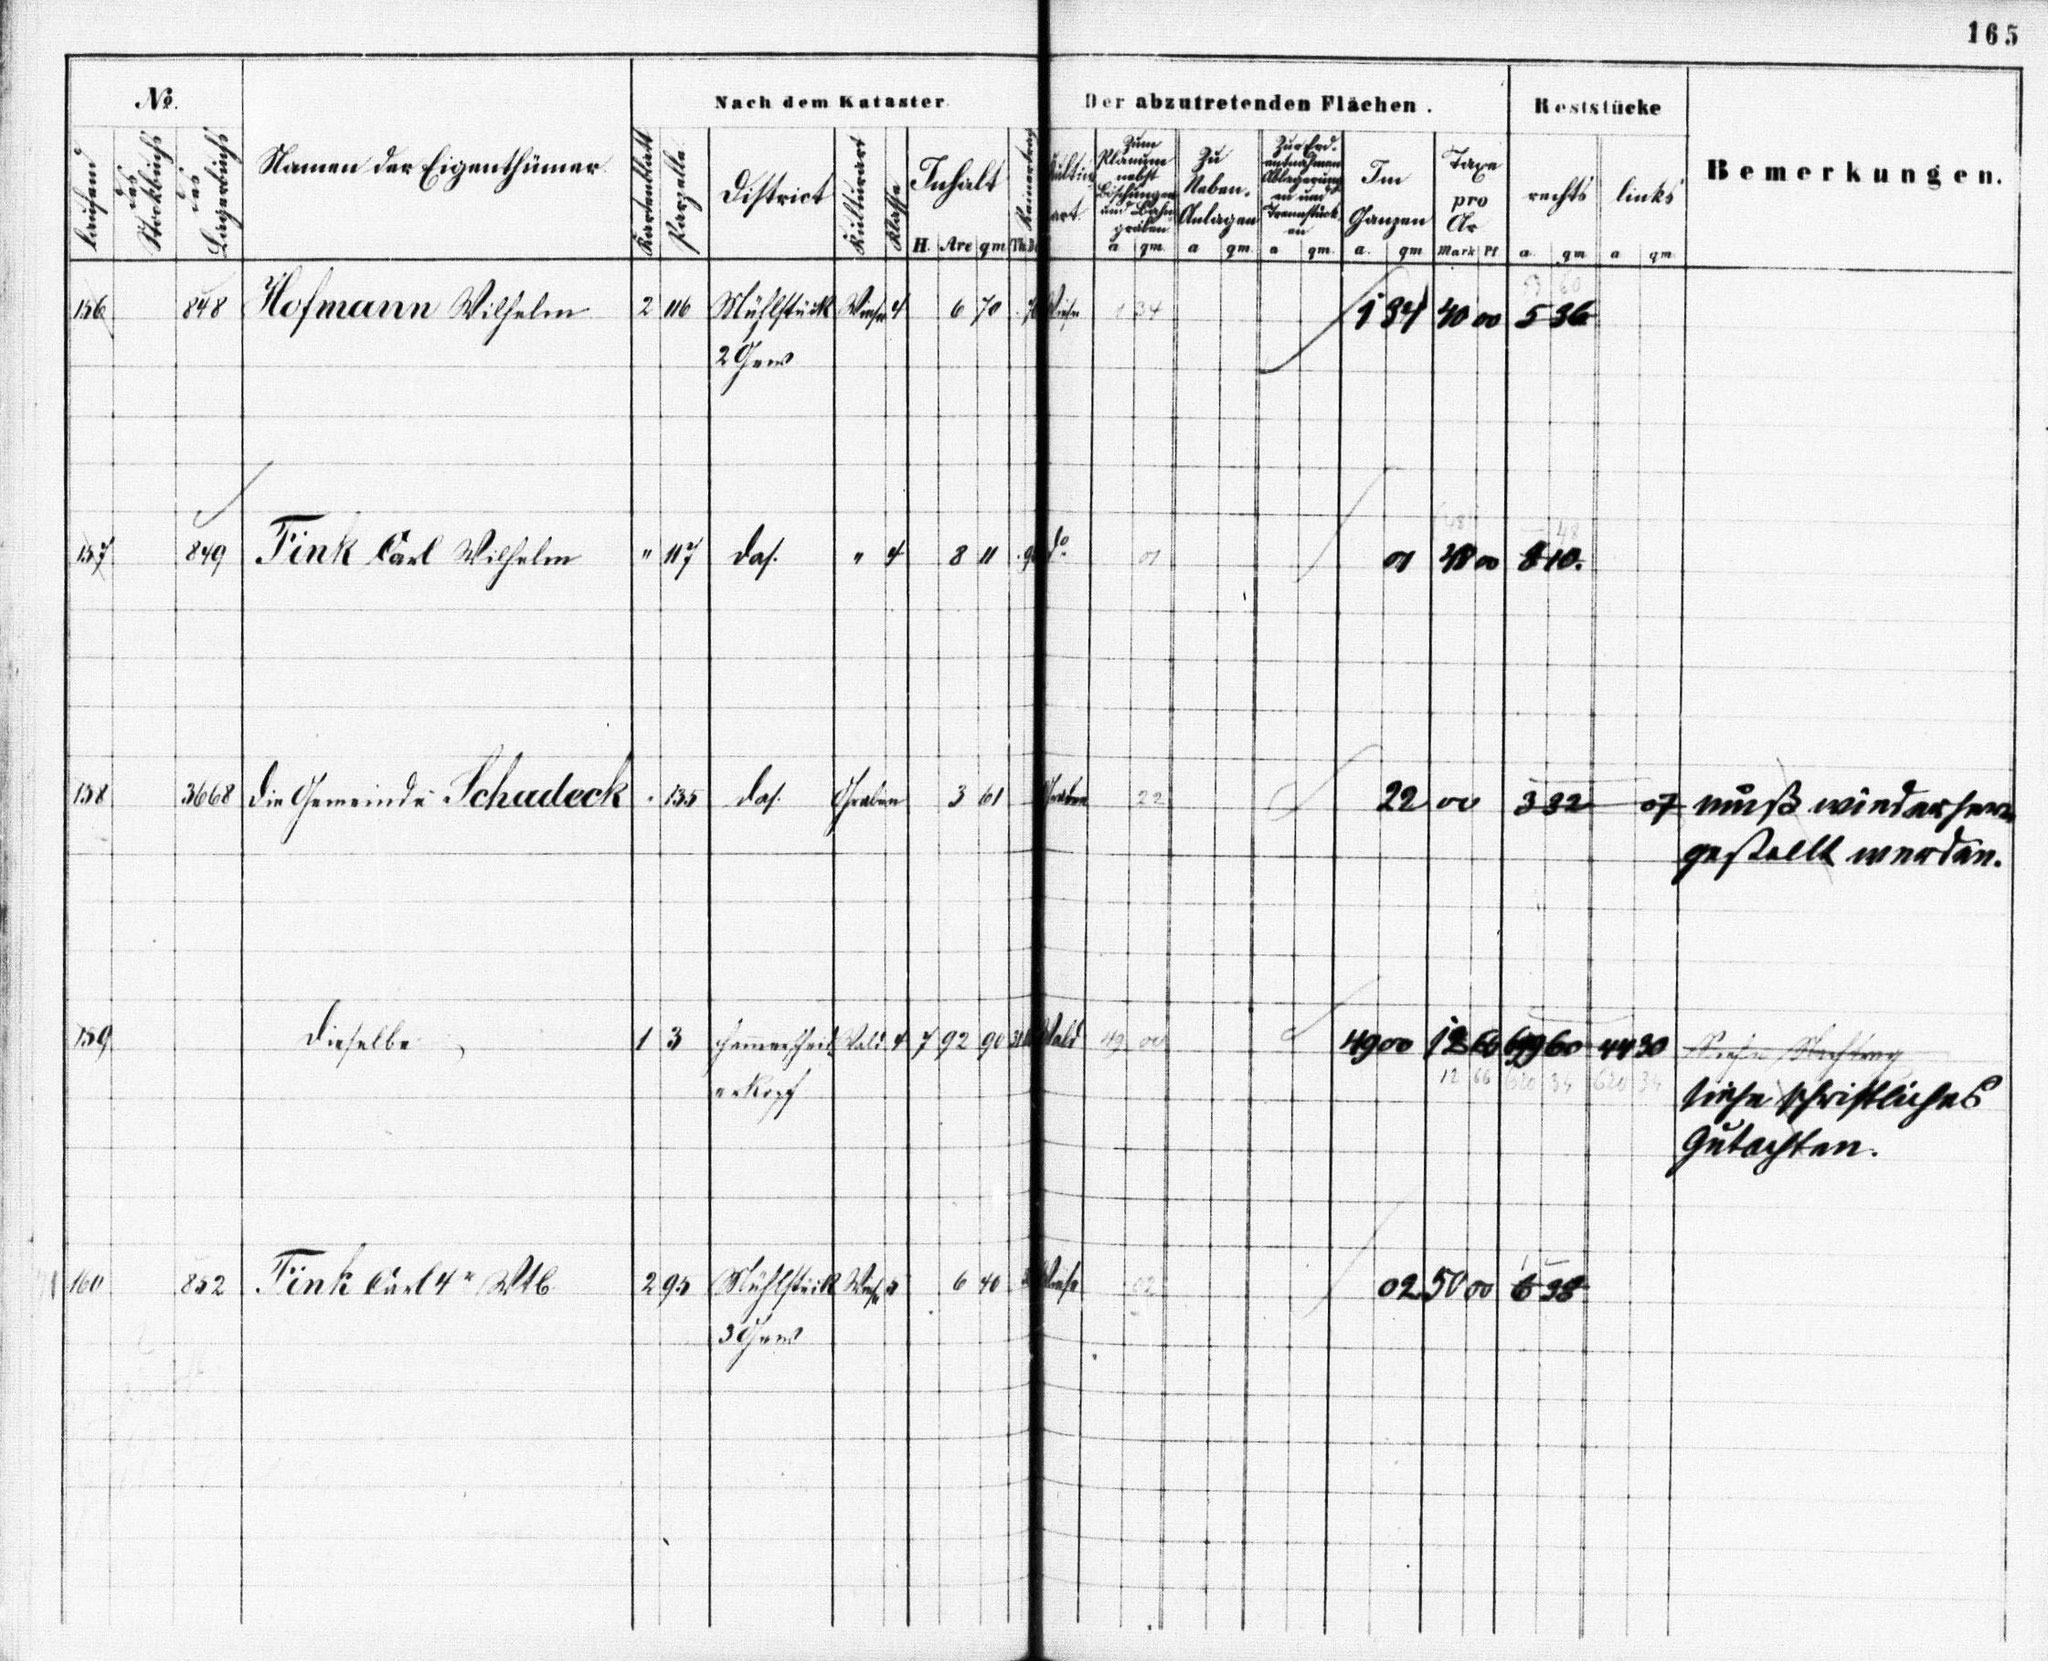 165
No. Nach dem Kataster. Der abzutretenden Flächen. Reststücke Bemerkungen.
laufend des Stockbuchs des Lagerbuchs Namen der Eigenthümer Kartenblatt Parzelle District Kulturart Klasse Inhalt Reinertrag Zum Planum nebst Böschungen und Bahngräben Zu Neben-Anlagen Zur Erdentnahmen Ablagerungen und Trennstücken Im Ganzen Taxe pro Ar rechts links
H. Are qm a qm a qm a qm a. qm Mark Pf a. qm a qm
156 848 Hofmann Wilhelm 2 116 Mühlstück Wiese 4 6 70 Wiese 1 34 1 34 40 00 5 36
2 Gew
157 849 Fink Carl Wilhelm " 117 das. " 4 8 11 do 01 01 48 00 8 10.
158 3668 die Gemeinde Schadeck 135 das. Graben 3 61 Graben 22 22 00 3 32 07 muß wiederher-
gestellt werden.
159 dieselbe 1 3 Wald 4 7 92 90 Wald 49 00 49 00 12 66 699 60 44 30 Siehe Nachtrag
12 66 620 34 620 34
erkopf siehe schriftliches
Gutachten.
160 852 Fink Carl 4r Wtb 2 95 Mühlstück Wiese 5 6 40 Wiese 02 02 50 00 6 38
3 Gew